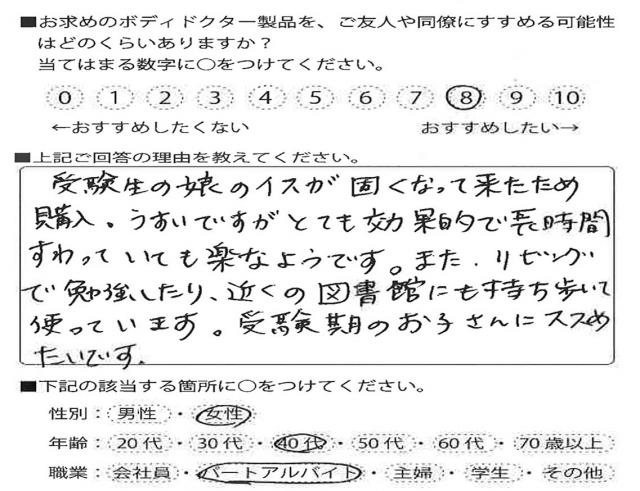 ■お求めのボディドクター製品を、ご友人や同僚にすすめる可能性
はどのくらいありますか？
当てはまる数字に○をつけてください。
0 1 2 3 4 5 6 7 8 9 10
←おすすめしたくない おすすめしたい→
■上記ご回答の理由を教えてください。
受験生の娘のイスが固くなって来たため
購入。うすいですがとても効果的で長時間
すわっていても楽なようです。また、リビング
で勉強したり、近くの図書館にも持ち歩いて
使っています。受験期のお子さんにススめ
たいです。
■下記の該当する箇所に○をつけてください。
性別：男性・女性
年齢：20代・30代・40代・50代・60代・70歳以上
職業：会社員・パートアルバイト・主婦・学生・その他